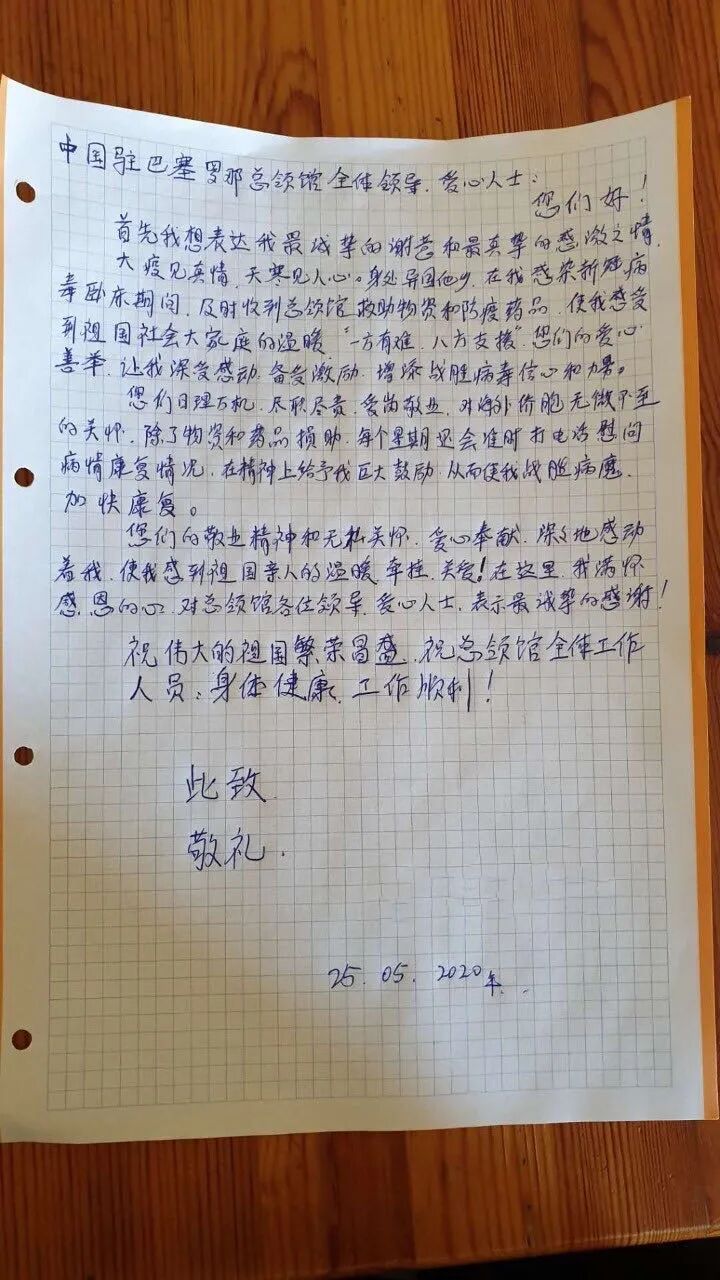 中国驻巴塞罗那总领馆全体领导、爱心人士:
您们好!
首先我想表达我最诚挚的谢意和最真挚的感激之情,
大疫见真情,天寒见人心。身处异国他乡,在我感染新冠病
毒卧床期间,及时收到总领馆救助物资和防疫药品,使我感受
到祖国社会大家庭的温暖,“一方有难,八方支援”,您们的爱心
善举,让我深受感动,备受激励,增添战胜病毒信心和力量。
您们日理万机,尽职尽责,爱岗敬业,对海外侨胞无微不至
的关怀,除了物资和药品捐助,每个星期还会准时打电话慰问
病情康复情况,在精神上给予我巨大鼓励,从而使我战胜病魔,
加快康复。
您们的敬业精神和无私关怀,爱心奉献,深深地感动
着我,使我感到祖国亲人的温暖,牵挂,关爱!在这里,我满怀
感恩的心,对总领馆各位领导,爱心人士,表示最诚挚的感谢!
祝伟大的祖国繁荣昌盛,祝总领馆全体工作
人员:身体健康,工作顺利!
此致
敬礼.
25.05.2020年.